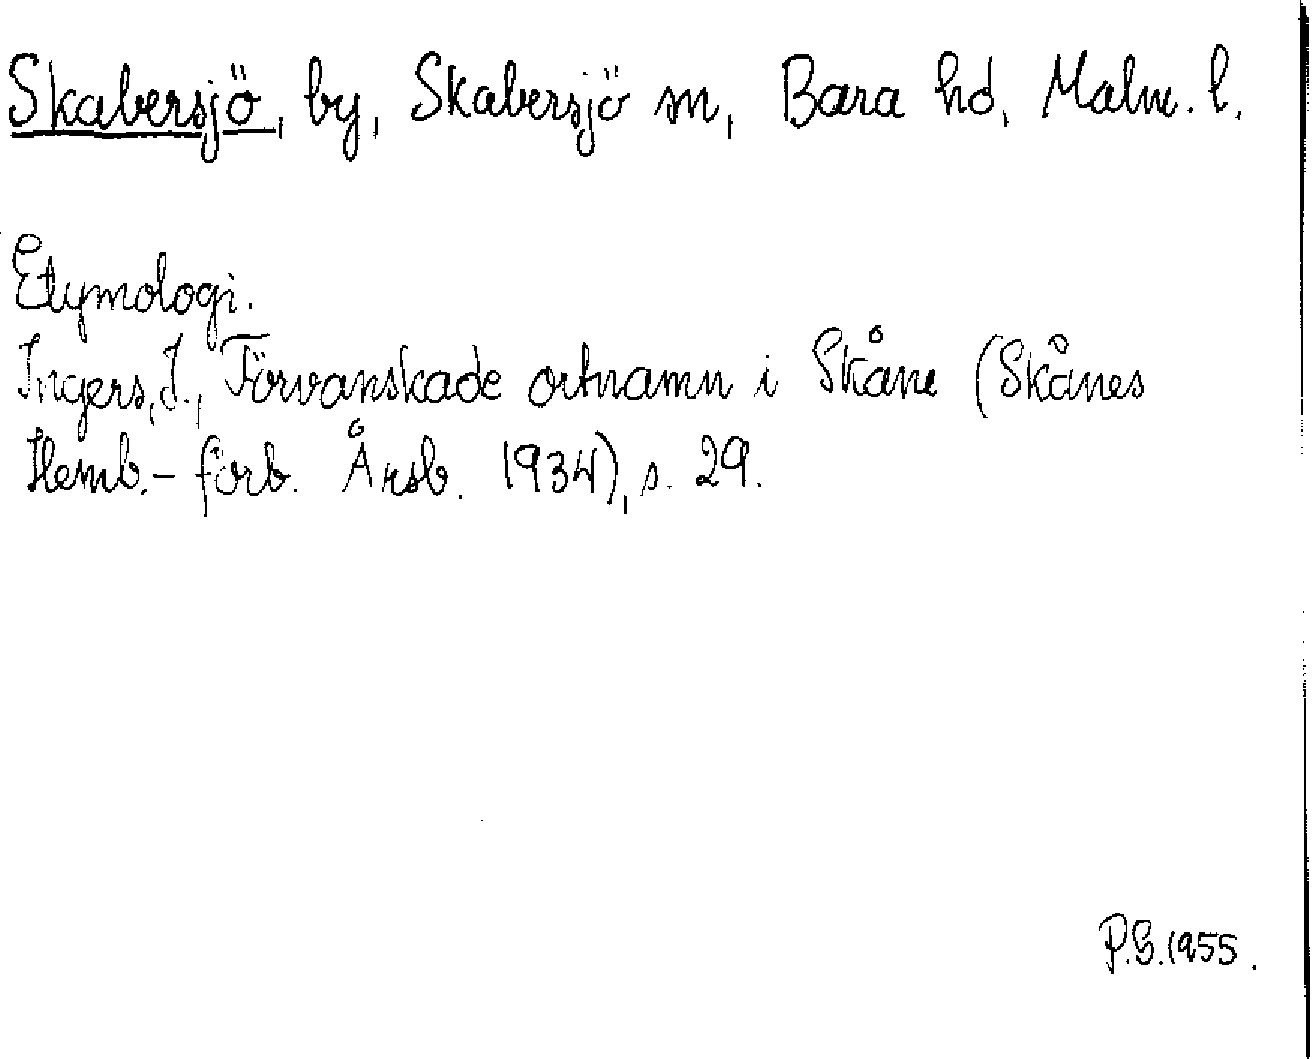 Skabersjö, by, Skabersjö sn, Bara hd, Malm. l.
Etymologi.
Ingers, I., Förvanskade ortnamn i Skåne (Skånes
Hemb.-förb. Årsb. 1934), s. 29.
P.G. 1955.